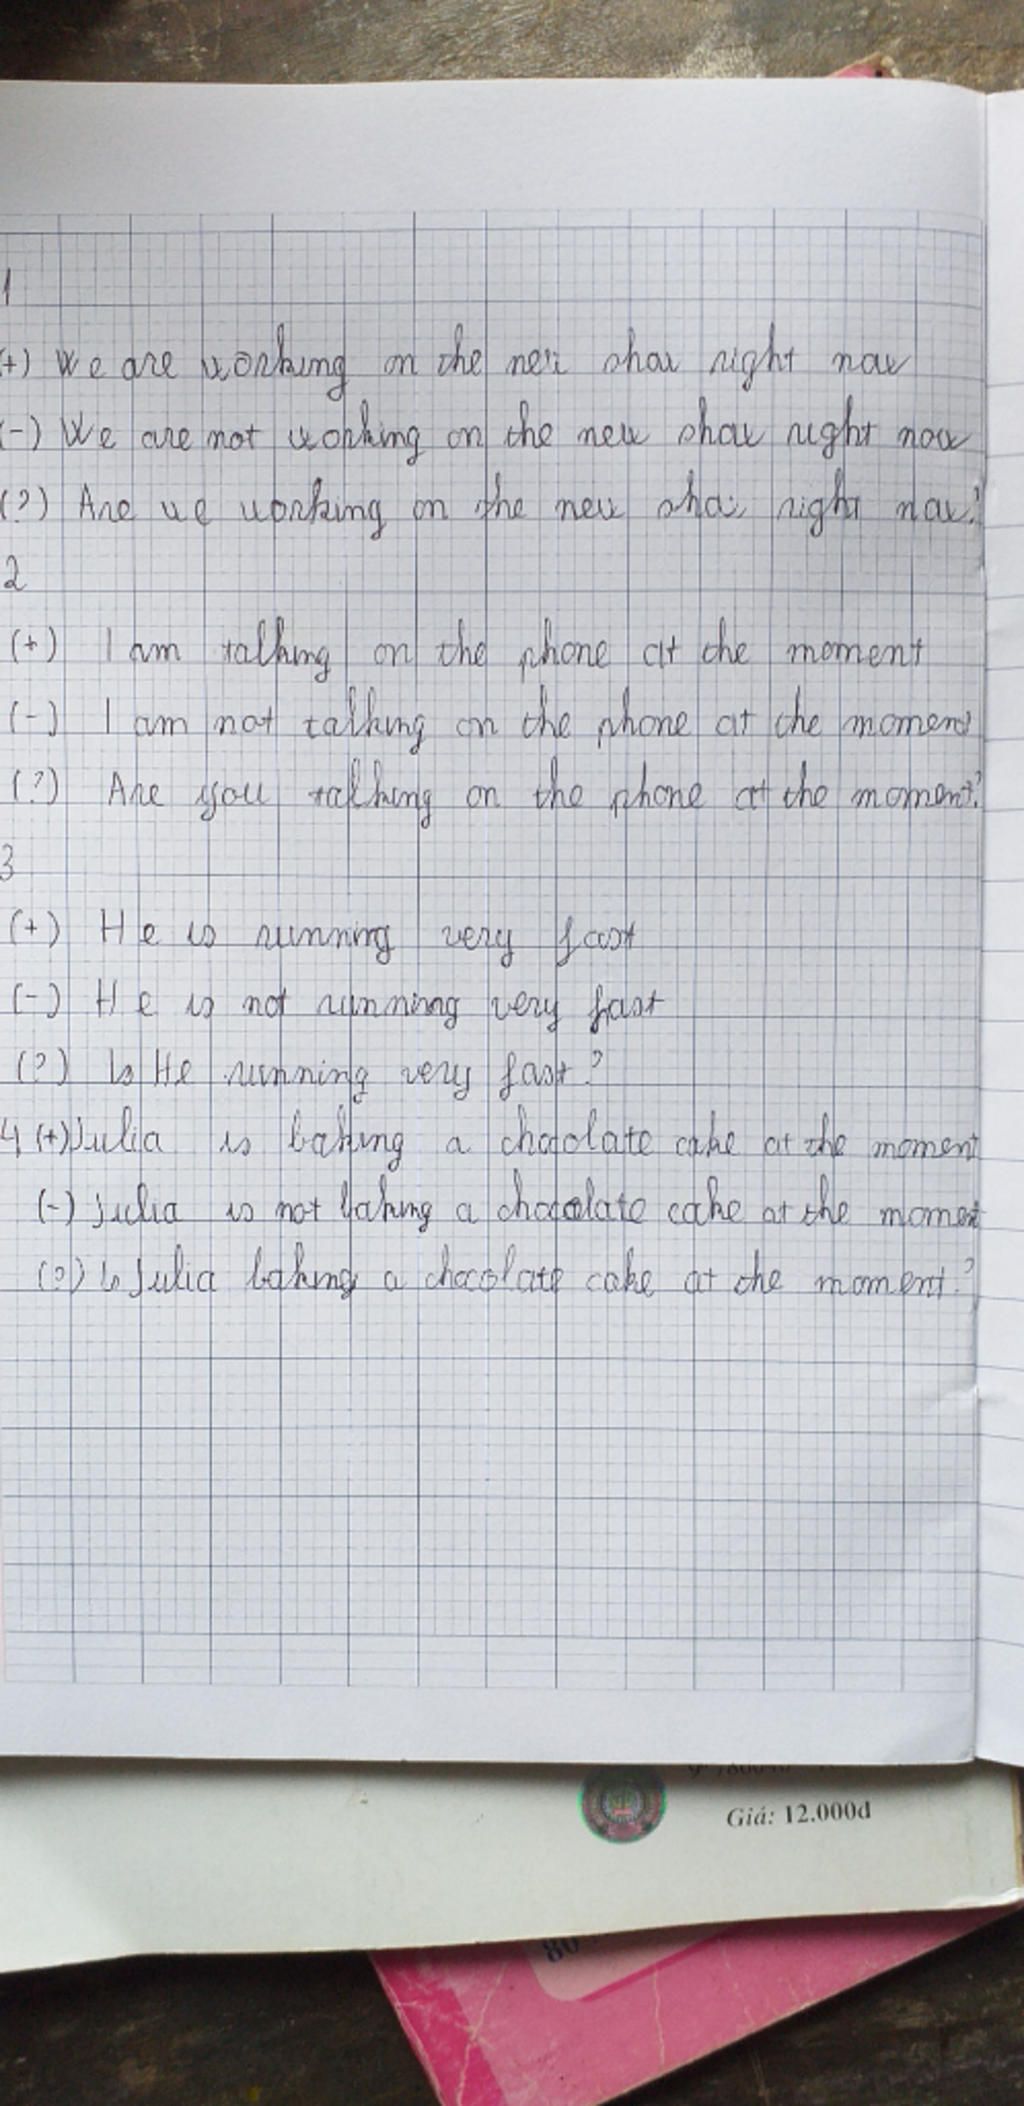 1
(+) We are working on the new show right now
(-) We are not working on the new show right now
(?) Are we working on the new show right now?
2
(+) I am talking on the phone at the moment
(-) I am not talking on the phone at the moment
(?) Are you talking on the phone at the moment?
3
(+) He is running very fast
(-) He is not running very fast
(?) Is He running very fast?
4, (+) Julia is baking a chocolate cake at the moment
(-) Julia is not baking a chocolate cake at the moment
(?) Is Julia baking a chocolate cake at the moment?
Giá: 12.000đ
80